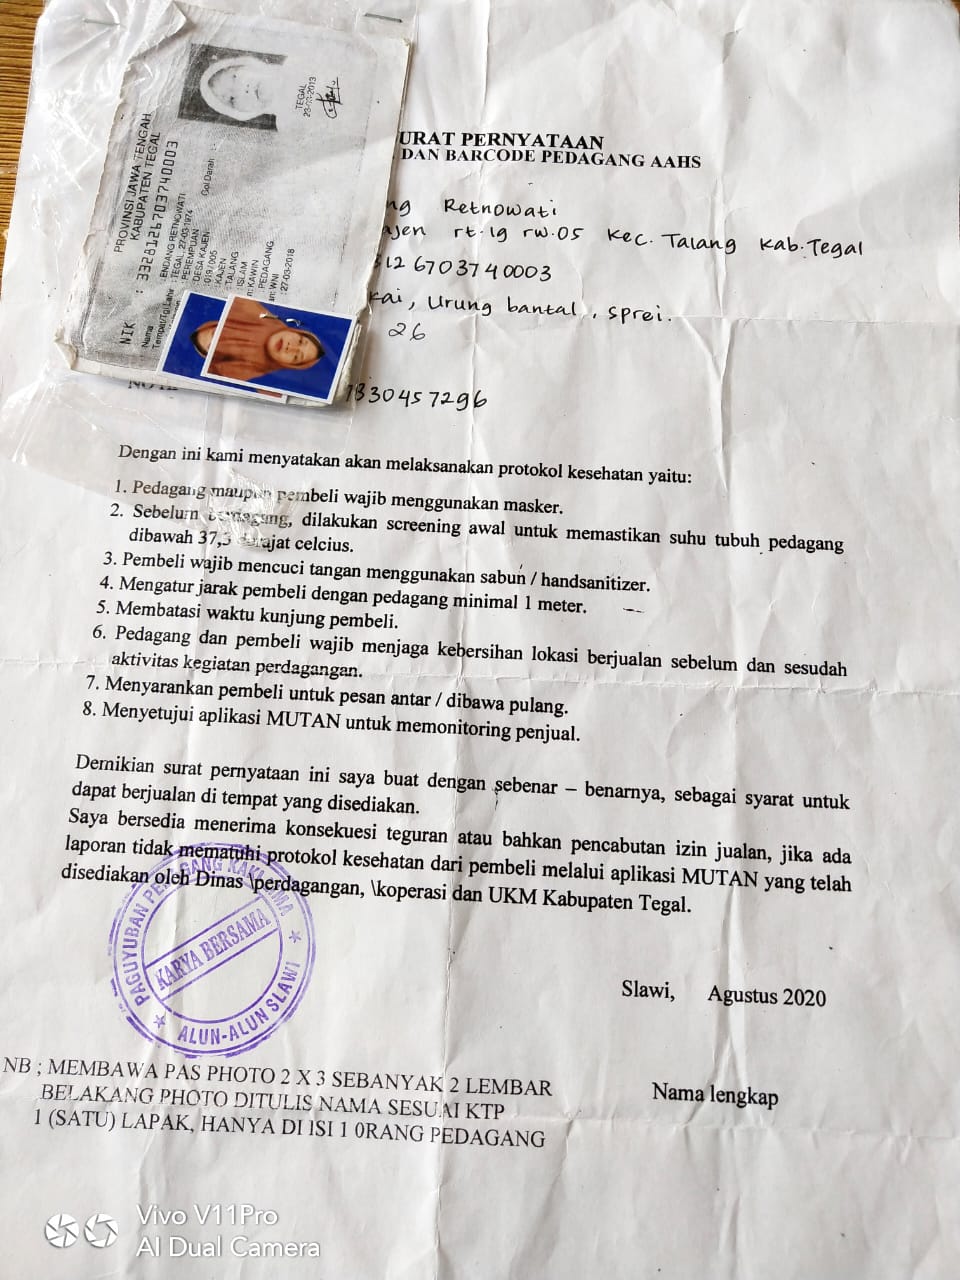 PROVINSI JAWA TENGAH
KABUPATEN TEGAL
NIK : 3328126703740003
Nama : ENDANG RETNOWATI
Tempat/Tgl Lahir : TEGAL, 27-03-1974
PEREMPUAN Gol Darah :
DESA KAJEN
019/005
KAJEN
TALANG
ISLAM
KAWIN
PEDAGANG
WNI
27-03-2018
TEGAL
23-03-2013
URAT PERNYATAAN
DAN BARCODE PEDAGANG AAHS
ng Retnowati
ajen rt.19 rw.05 Kec. Talang Kab.Tegal
8126703740003
kai, Urung bantal, sprei.
26
330457296
Dengan ini kami menyatakan akan melaksanakan protokol kesehatan yaitu:
1. Pedagang maupun pembeli wajib menggunakan masker.
2. Sebelum berdagang, dilakukan screening awal untuk memastikan suhu tubuh pedagang
dibawah 37,3 derajat celcius.
3. Pembeli wajib mencuci tangan menggunakan sabun / handsanitizer.
4. Mengatur jarak pembeli dengan pedagang minimal 1 meter.
5. Membatasi waktu kunjung pembeli.
6. Pedagang dan pembeli wajib menjaga kebersihan lokasi berjualan sebelum dan sesudah
aktivitas kegiatan perdagangan.
7. Menyarankan pembeli untuk pesan antar / dibawa pulang.
8. Menyetujui aplikasi MUTAN untuk memonitoring penjual.
Demikian surat pernyataan ini saya buat dengan sebenar – benarnya, sebagai syarat untuk
dapat berjualan di tempat yang disediakan.
Saya bersedia menerima konsekuesi teguran atau bahkan pencabutan izin jualan, jika ada
laporan tidak mematuhi protokol kesehatan dari pembeli melalui aplikasi MUTAN yang telah
disediakan oleh Dinas \perdagangan, \koperasi dan UKM Kabupaten Tegal.
PAGUYUBAN PEDAGANG KAKI LIMA
KARYA BERSAMA
ALUN-ALUN SLAWI
Slawi, Agustus 2020
NB ; MEMBAWA PAS PHOTO 2 X 3 SEBANYAK 2 LEMBAR
BELAKANG PHOTO DITULIS NAMA SESUAI KTP
1 (SATU) LAPAK, HANYA DI ISI 1 0RANG PEDAGANG
Nama lengkap
Vivo V11Pro
AI Dual Camera